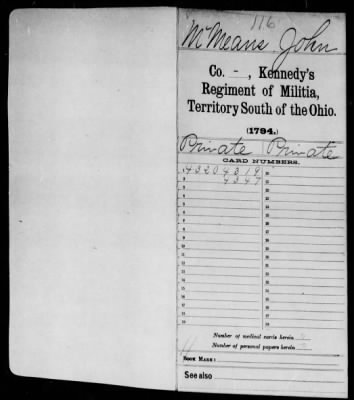 116
McMeans, John
Co. - , Kennedy's
Regiment of Militia,
Territory South of the Ohio.
(1794.)
Private Private
CARD NUMBERS.
43204319
4347
Number of medical cards herein
Number of personal papers herein
BOOK MARK:
See also